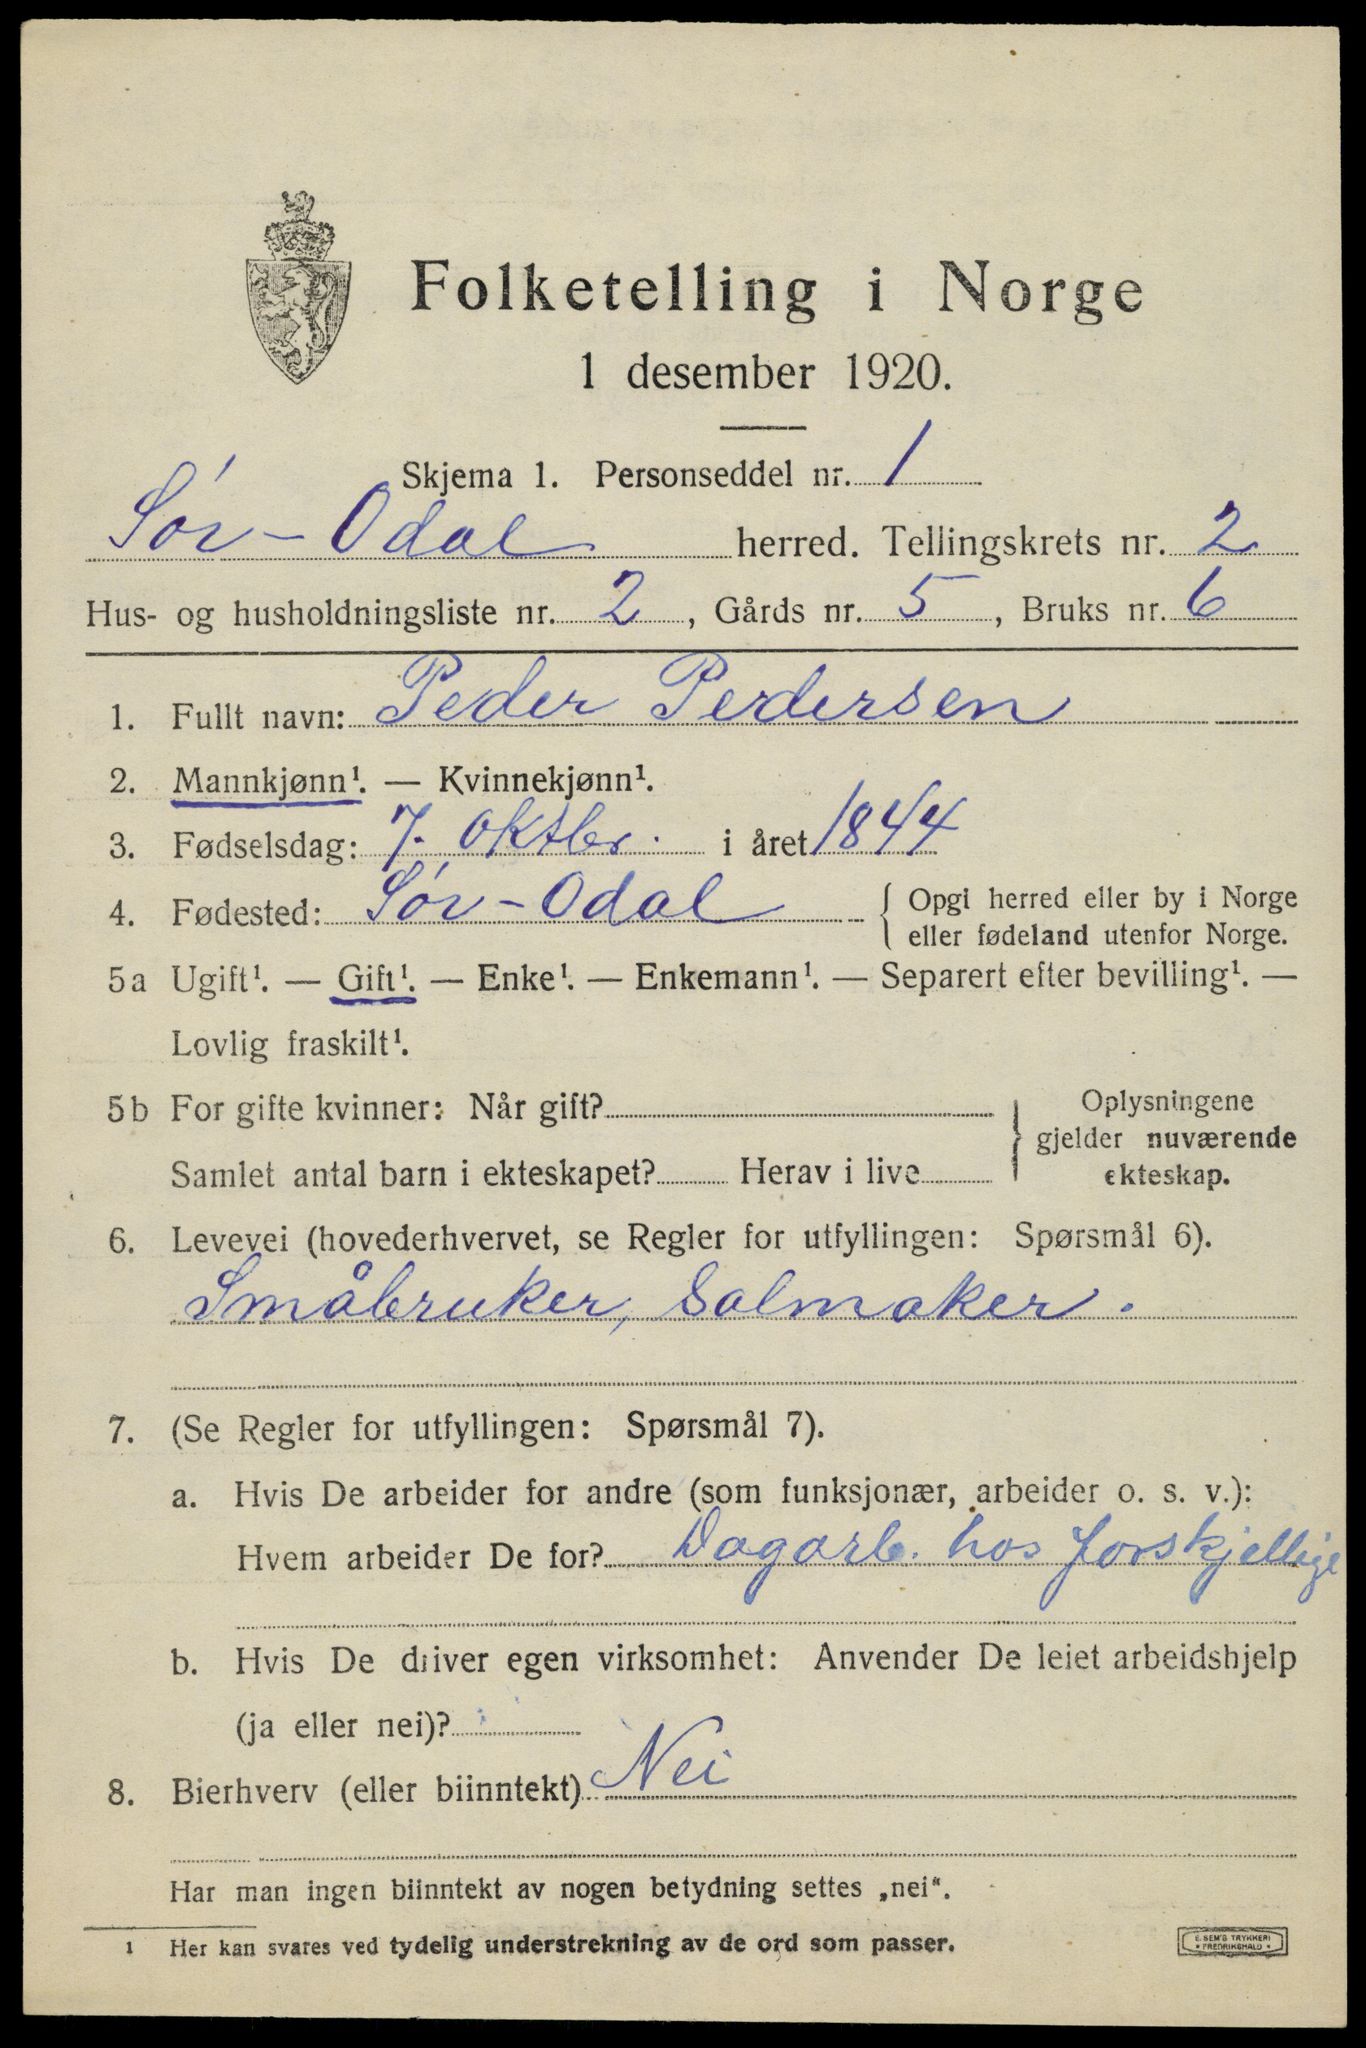 Folketelling i Norge
1 desember 1920.
Skjema 1. Personseddel nr. 1
Sør-Odal herred. Tellingskrets nr. 2
Hus- og husholdningsliste nr. 2, Gårds nr. 5, Bruks nr. 6
1. Fullt navn: Peder Perdersen
2. Mannkjønn¹. — Kvinnekjønn¹.
3. Fødselsdag: 7. oktbr. i året 1844
4. Fødested: Sør-Odal { Opgi herred eller by i Norge
eller fødeland utenfor Norge.
5a Ugift¹. — Gift¹. — Enke¹. — Enkemann¹. — Separert efter bevilling¹. —
Lovlig fraskilt¹.
5b For gifte kvinner: Når gift? } Oplysningene
gjelder nuværende
Samlet antal barn i ekteskapet? Herav i live ekteskap.
6. Levevei (hovederhvervet, se Regler for utfyllingen: Spørsmål 6).
Småbruker, Salmaker.
7. (Se Regler for utfyllingen: Spørsmål 7).
a. Hvis De arbeider for andre (som funksjonær, arbeider o. s. v.):
Hvem arbeider De for? Dagarb. hos forskjellige
b. Hvis De driver egen virksomhet: Anvender De leiet arbeidshjelp
(ja eller nei)?
8. Bierhverv (eller biinntekt) Nei
Har man ingen biinntekt av nogen betydning settes „nei“.
1 Her kan svares ved tydelig understrekning av de ord som passer.
E. SEM'S TRYKKERI
* FREDRIKSHALD *